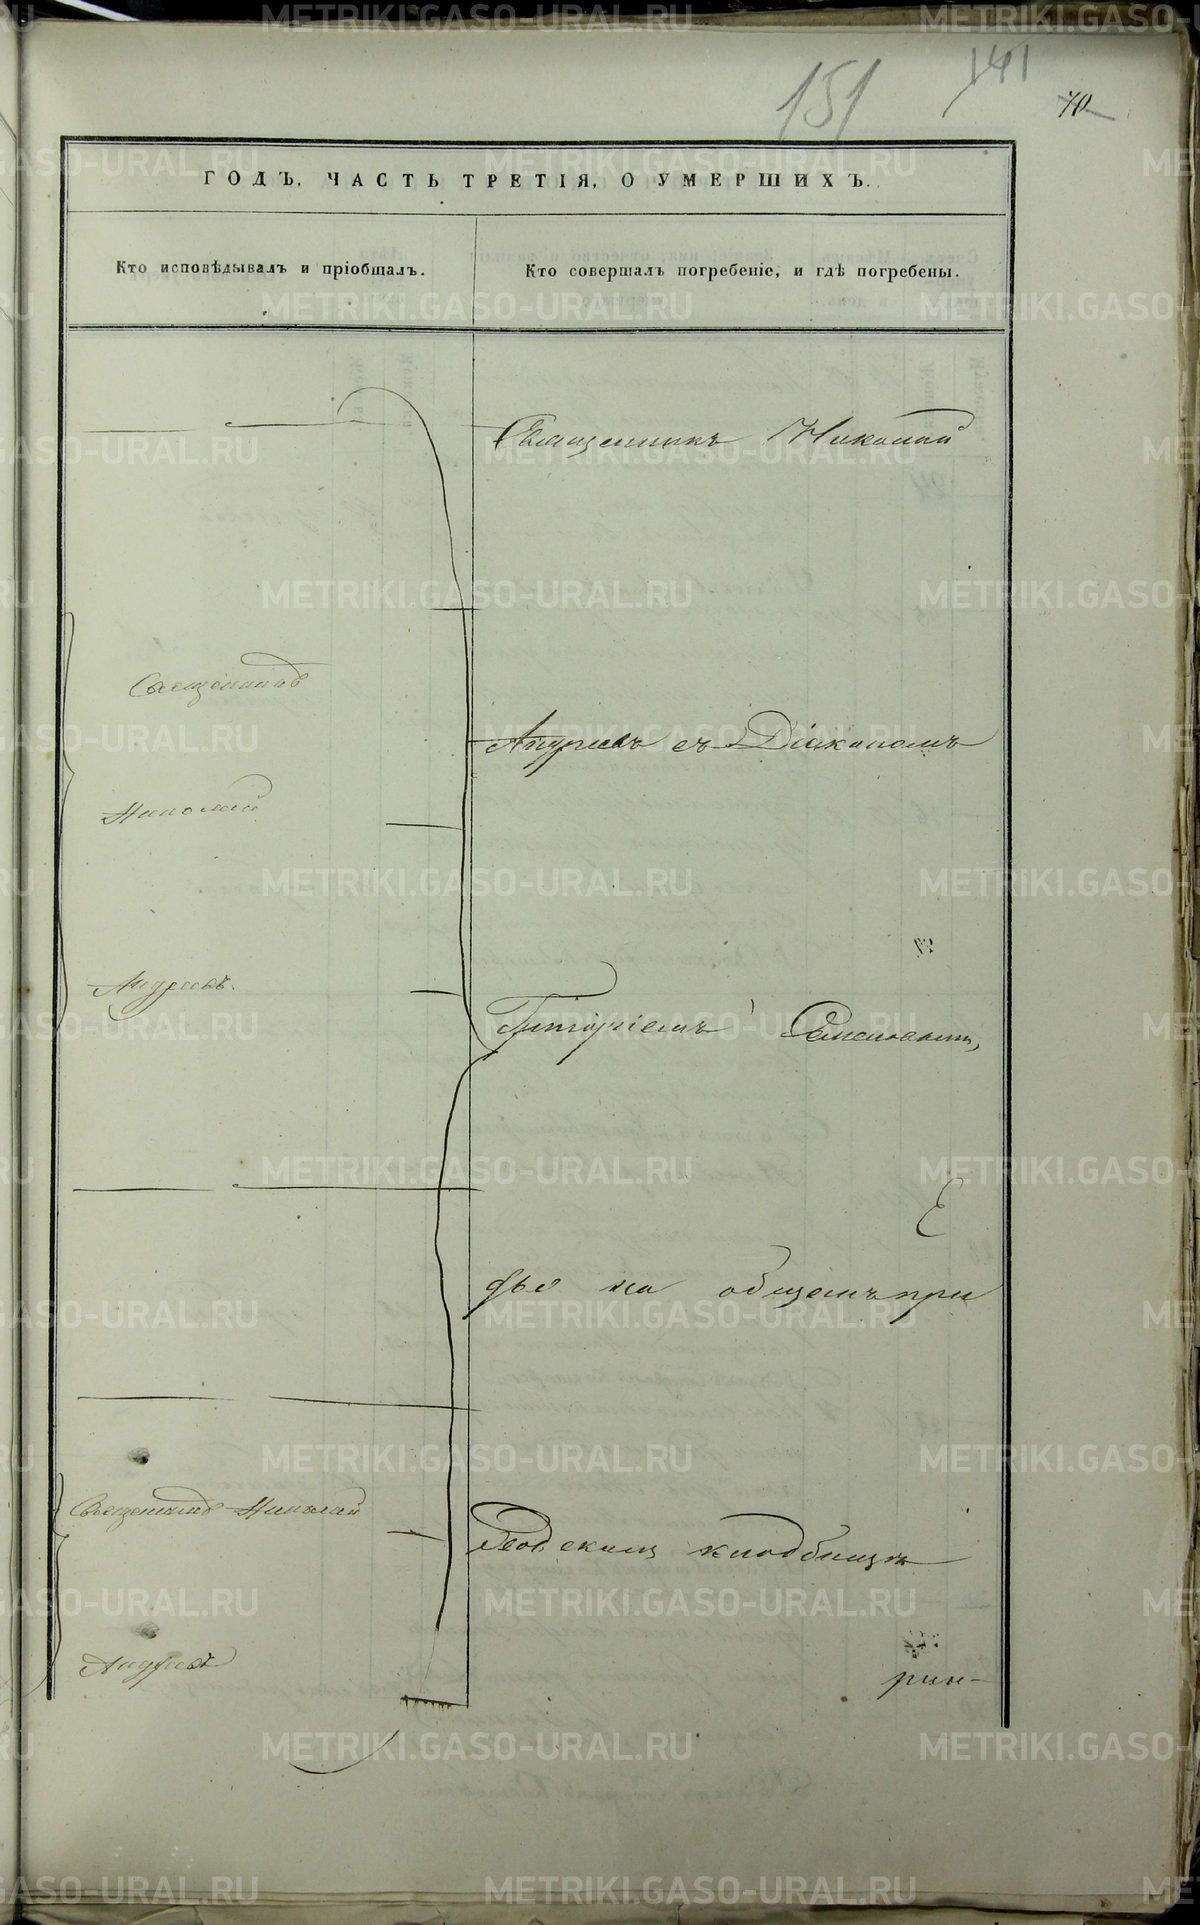 151
141
70
ГОДЪ, ЧАСТЬ ТРЕТІЯ, О УМЕРШИХЪ.
Кто исповѣдывалъ и пріобщалъ.
Кто совершалъ погребеніе, и гдѣ погребены.
Священникъ Николай
Священникъ
Андреевъ съ Діакономъ
Николай
Андреевъ.
Григоріемъ
на общемъ при
Священникъ Николай
кладбищѣ
Андреевъ
METRIKI.GASO-URAL.RU